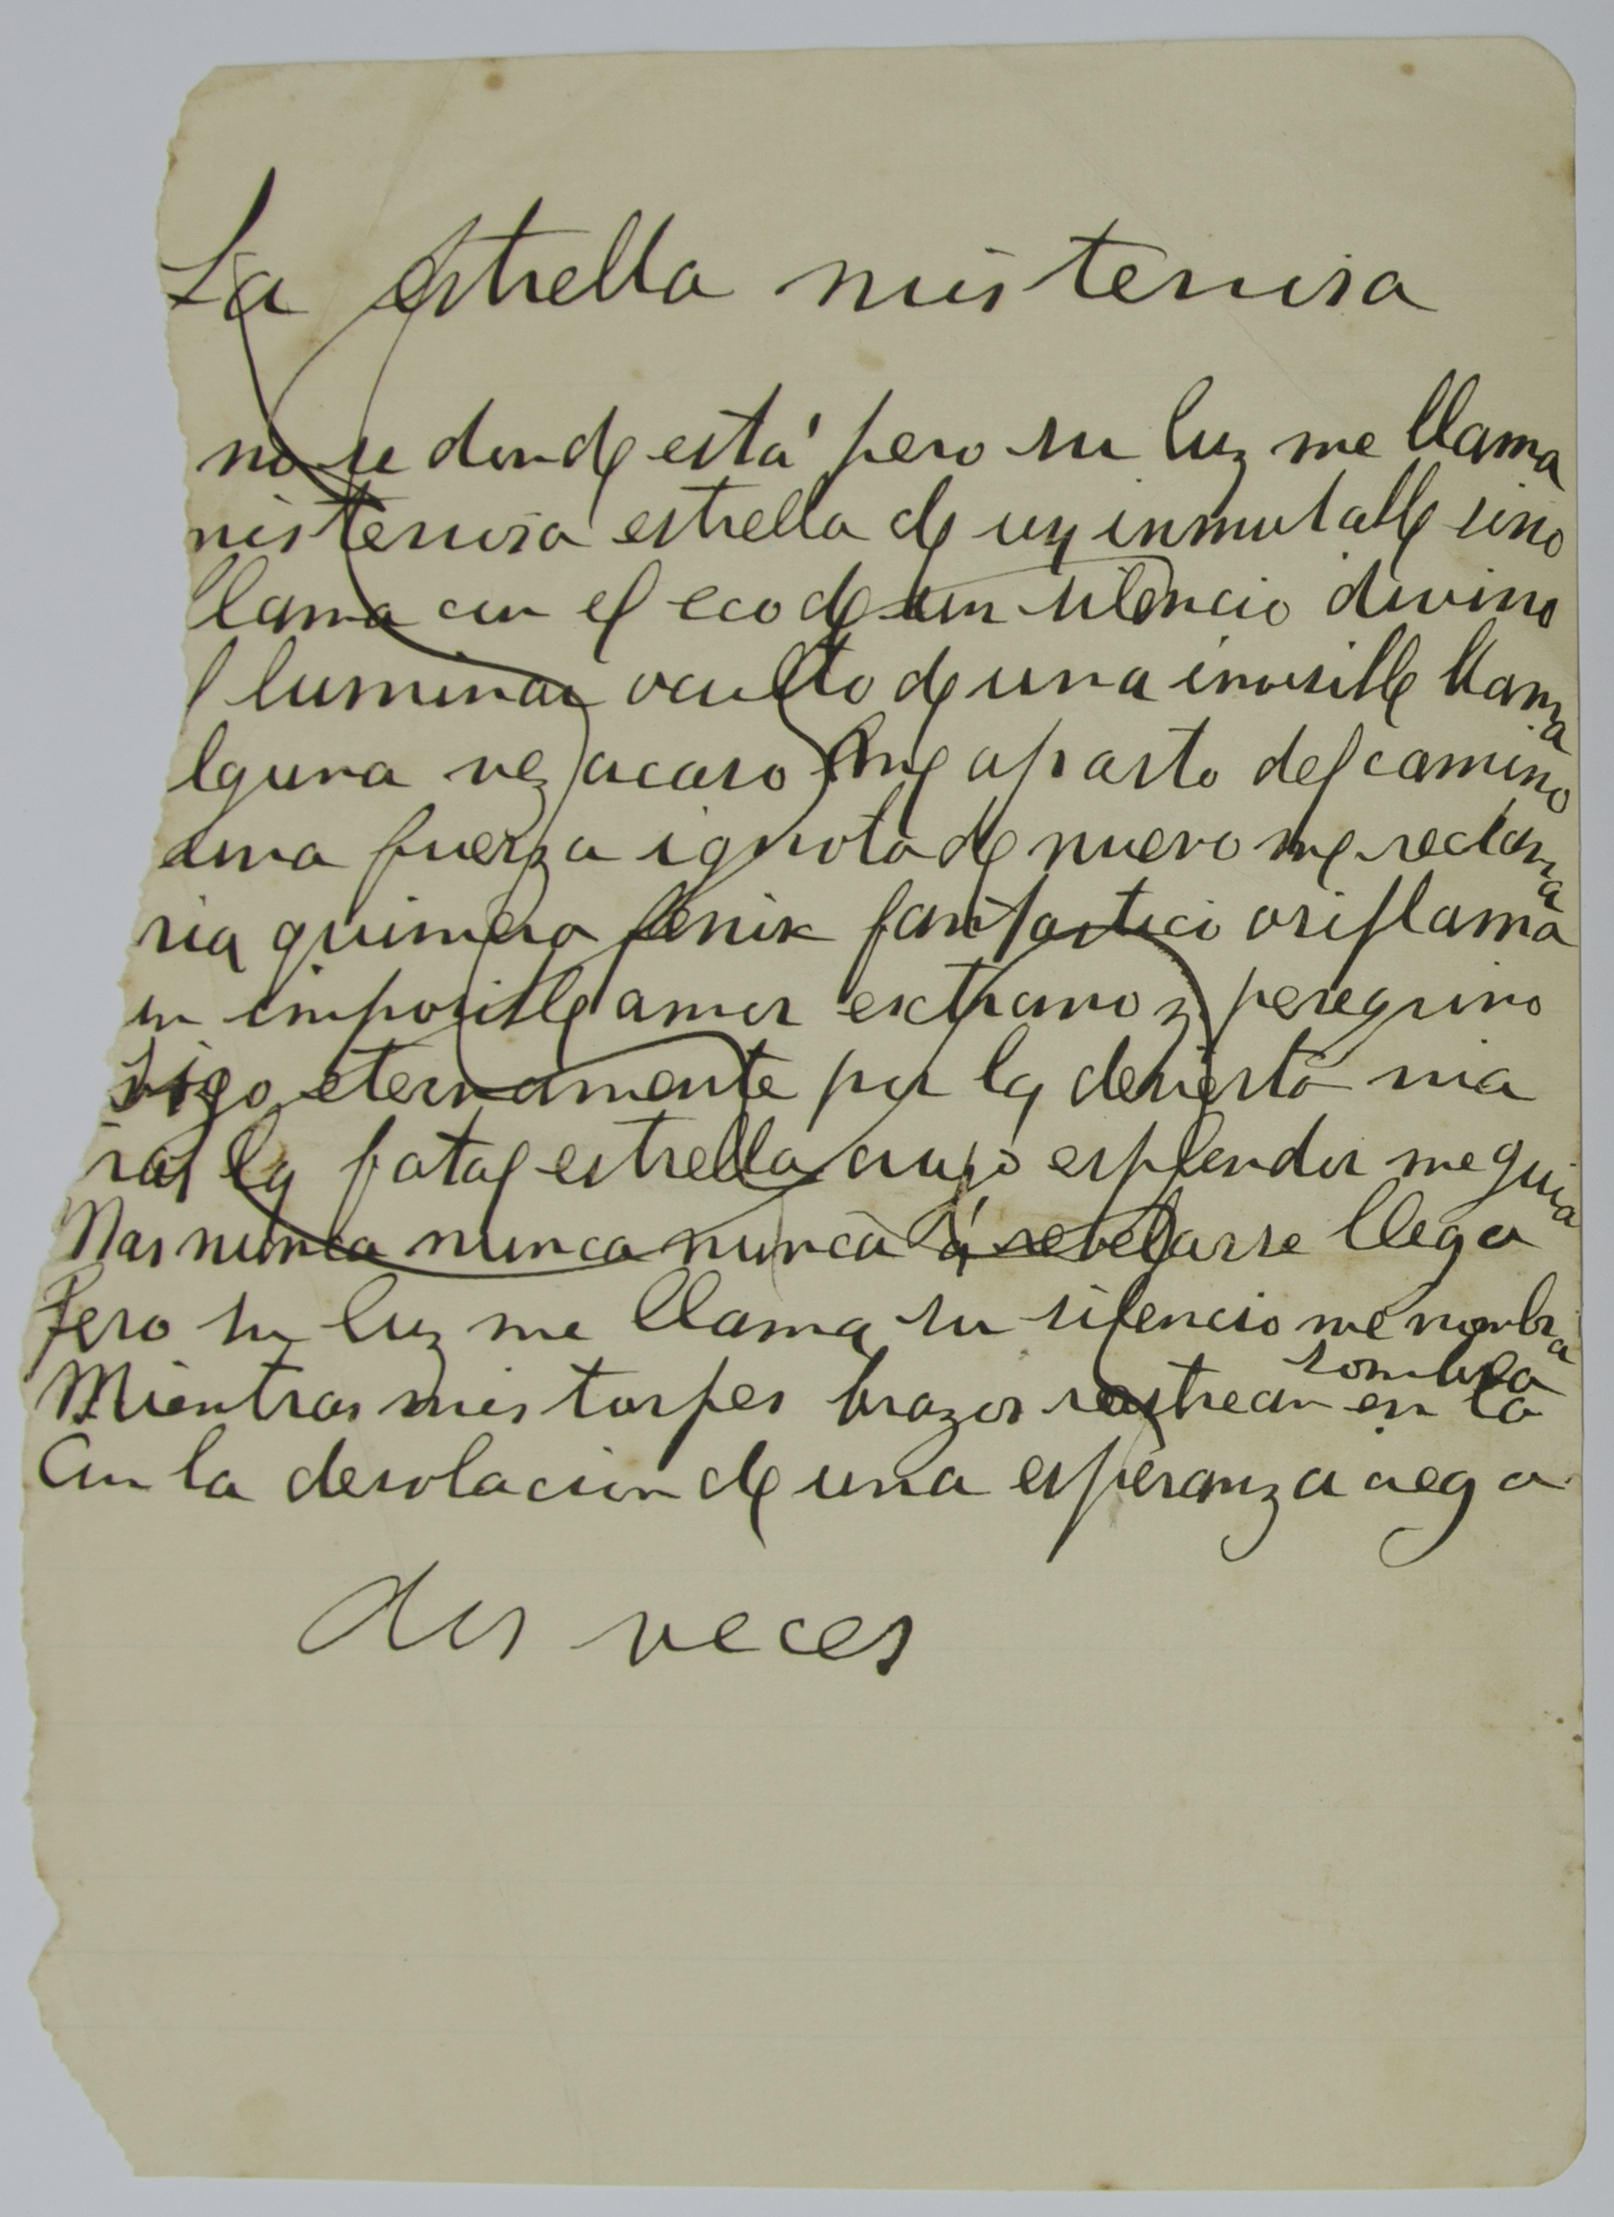 La estrella misteriosa
no se donde está pero su luz me llama
misteriosa estrella de un inmutable sino
llama con el eco de un silencio divino
l luminar oculto de una invisible llama
lguna vez acaso me aparto del camino
una fuerza ignota de nuevo me reclama
ria quimera fenix fantastico oriflama
un imposible amor extrano y peregrino
sigo eternamente por la desierta via
ras la fatal estrella cuyo esplendor me guia
Mas nunca nunca nunca á revelarse llega
Pero su luz me llama su silencio me nombra
Mientras mis torpes brazos rastrean en la sombra
Con la desolacion de una esperanza ciega
dos veces